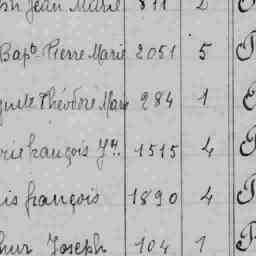 Jean Marie 811 2
Bapte Pierre Marie 2051 5
Théodore Marie 284 1
françois Jh. 1515 4
françois 1890 4
Joseph 104 1